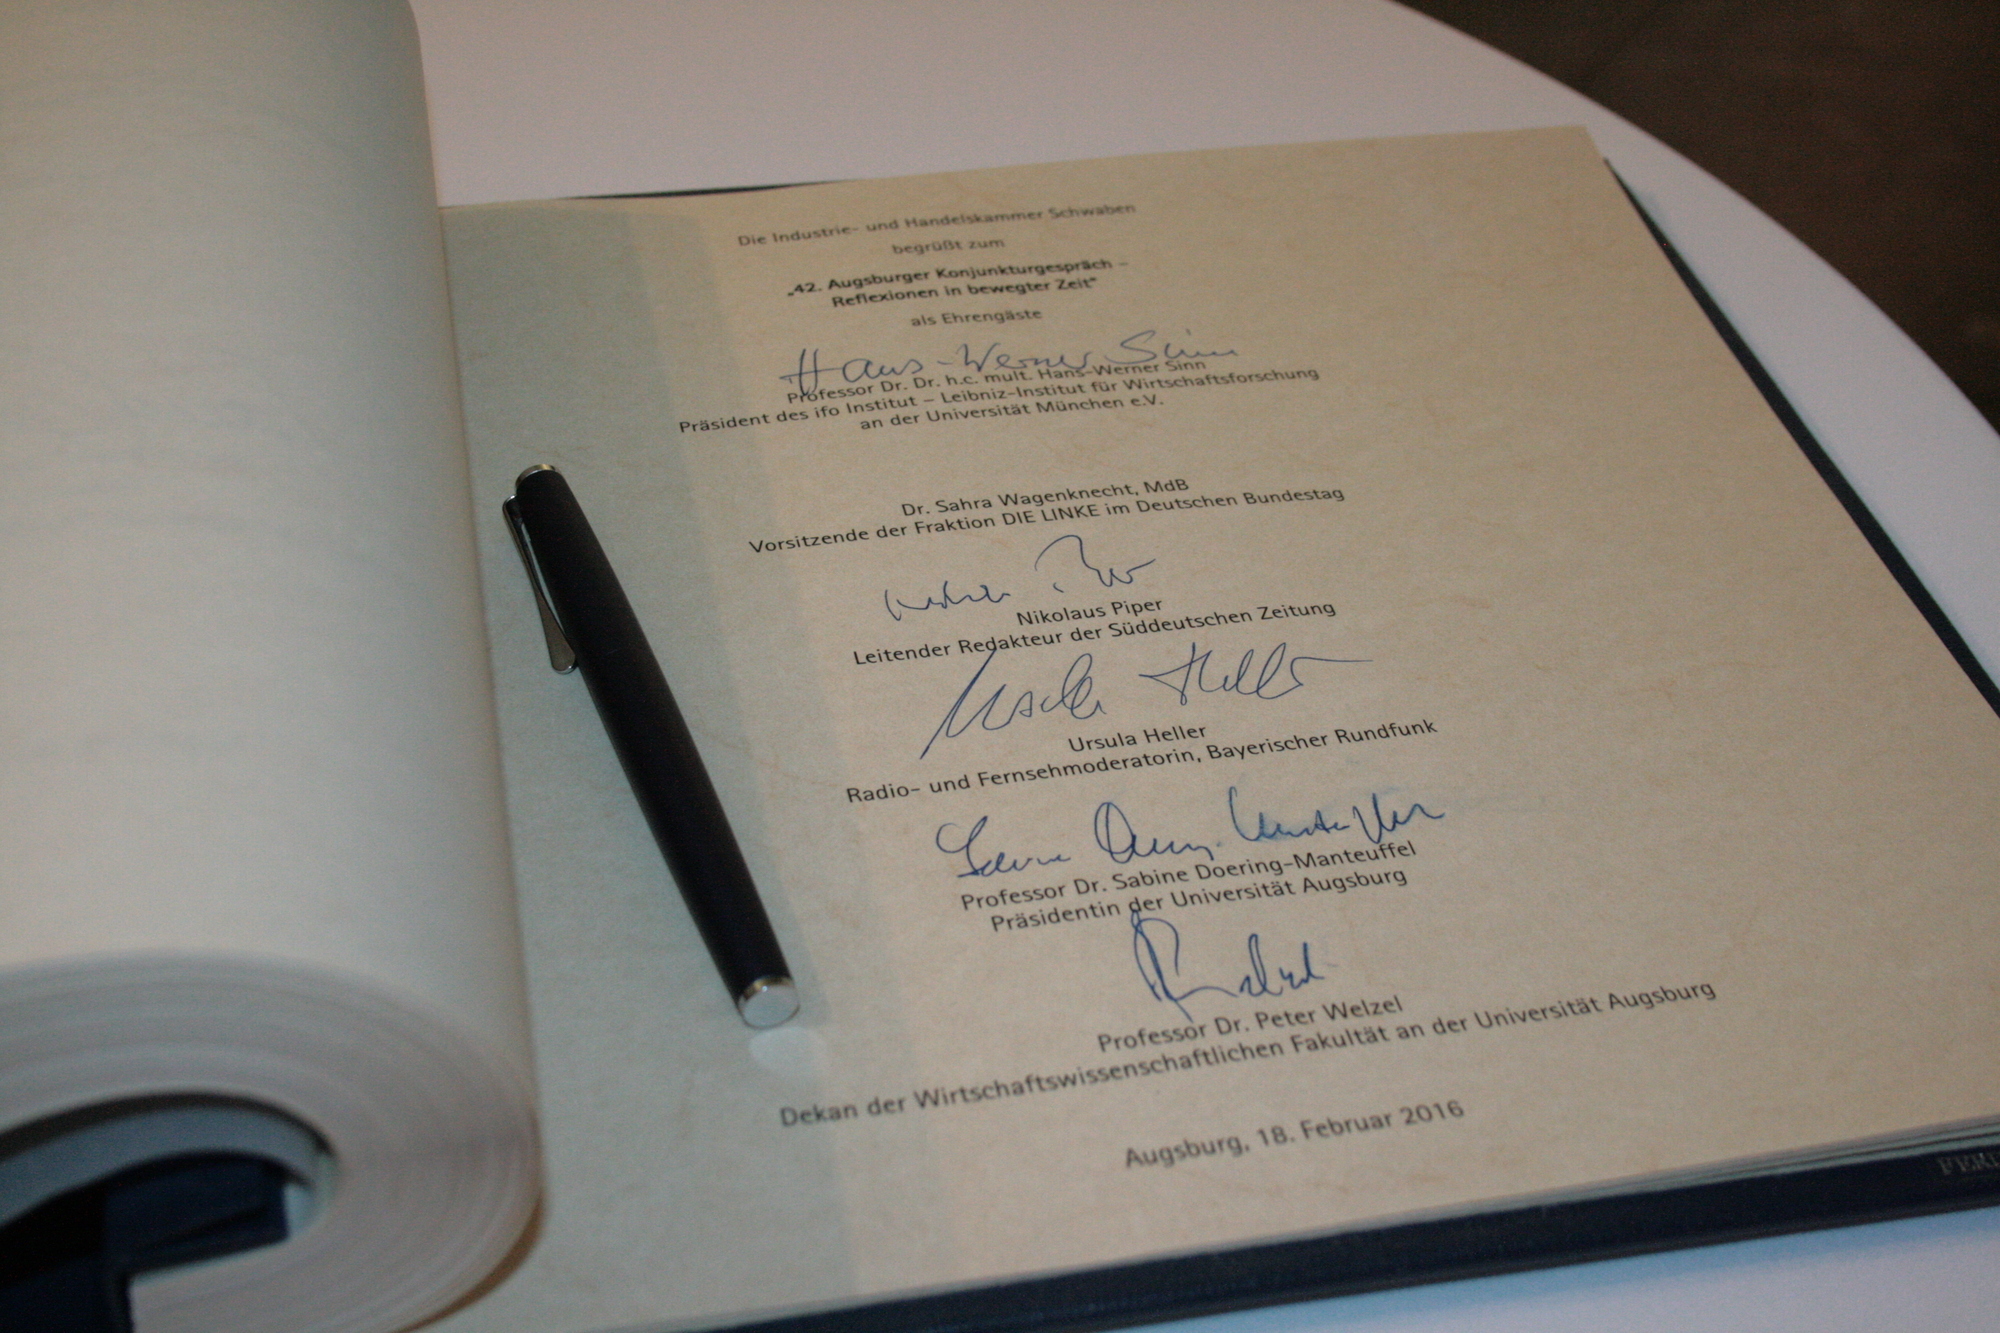 Die Industrie- und Handelskammer Schwaben
begrüßt zum
„42. Augsburger Konjunkturgespräch –
Reflexionen in bewegter Zeit“
als Ehrengäste
Hans-Werner Sinn
Professor Dr. Dr. h.c. mult. Hans-Werner Sinn
Präsident des ifo Institut – Leibniz-Institut für Wirtschaftsforschung
an der Universität München e.V.
Dr. Sahra Wagenknecht, MdB
Vorsitzende der Fraktion DIE LINKE im Deutschen Bundestag
Nikolaus Piper
Leitender Redakteur der Süddeutschen Zeitung
Ursula Heller
Ursula Heller
Radio- und Fernsehmoderatorin, Bayerischer Rundfunk
Professor Dr. Sabine Doering-Manteuffel
Präsidentin der Universität Augsburg
Professor Dr. Peter Welzel
Dekan der Wirtschaftswissenschaftlichen Fakultät an der Universität Augsburg
Augsburg, 18. Februar 2016